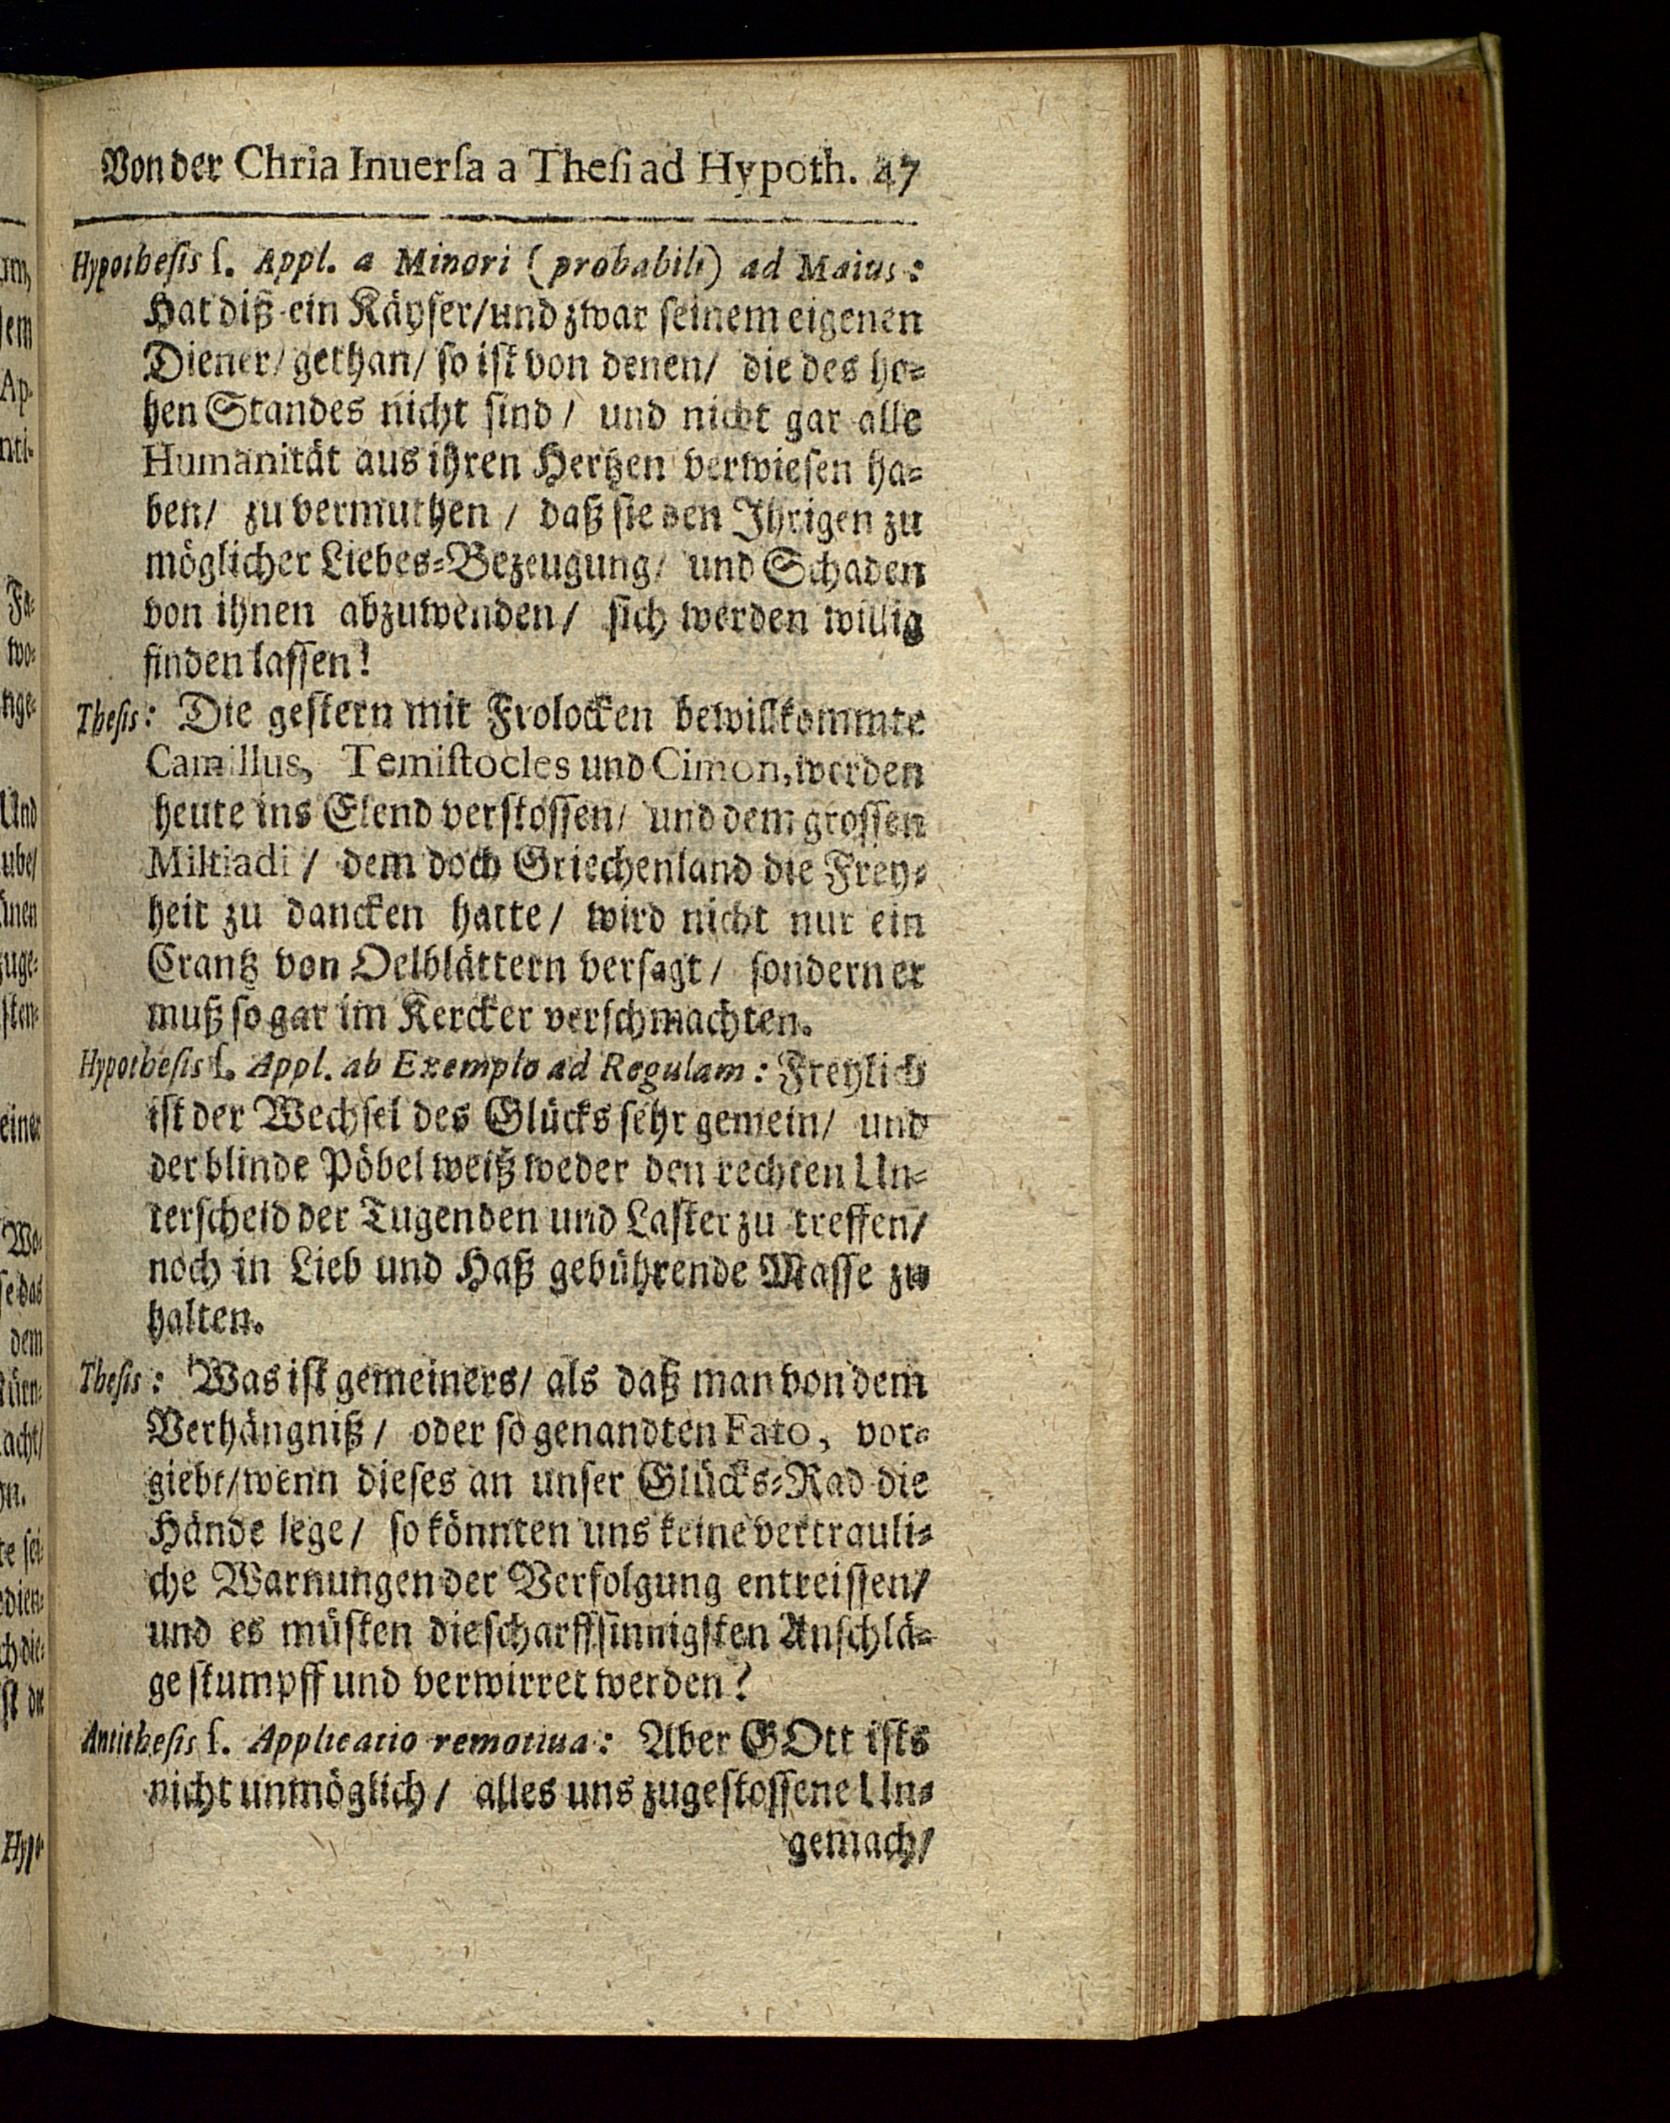 Von der Chria Inuerſa a Theſi ad Hypoth. 47
Hypotheſis ſ. Appl. a Minori (probabili) ad Maius:
Hat diß ein Käyſer/und zwar ſeinem eigenen
Diener/ gethan/ ſo iſt von denen/ die des ho=
hen Standes nicht ſind/ und nicht gar alle
Humanität aus ihren Hertzen verwieſen ha=
ben/ zu vermuthen/ daß ſie den Ihrigen zu
möglicher Liebes=Bezeugung/ und Schaden
von ihnen abzuwenden/ ſich werden willig
finden laſſen!
Theſis: Die geſtern mit Frolocken bewillkommte
Camillus, Temiſtocles und Cimon, werden
heute ins Elend verſtoſſen/ und dem groſſen
Miltiadi/ dem doch Griechenland die Frey=
heit zu dancken hatte/ wird nicht nur ein
Crantz von Oelblättern verſagt/ ſondern er
muß ſo gar im Kercker verſchmachten.
Hypotheſis ſ. Appl. ab Exemplo ad Regulam: Freylich
iſt der Wechſel des Glücks ſehr gemein/ und
der blinde Pöbel weiß weder den rechten Un=
terſcheid der Tugenden und Laſter zu treffen/
noch in Lieb und Haß gebührende Maſſe zu
halten.
Theſis: Was iſt gemeiners/ als daß man von dem
Verhängniß/ oder ſo genandten Fato, vor=
giebt/wenn dieſes an unſer Glücks=Rad die
Hände lege/ ſo könnten uns keine vertrauli=
che Warnungen der Verfolgung entreiſſen/
und es müſten die ſcharffſinnigſten Anſchlä=
ge ſtumpff und verwirret werden?
Antitheſis ſ. Applicatio remotiua: Aber GOtt iſts
nicht unmöglich/ alles uns zugeſtoſſene Un=
gemach/